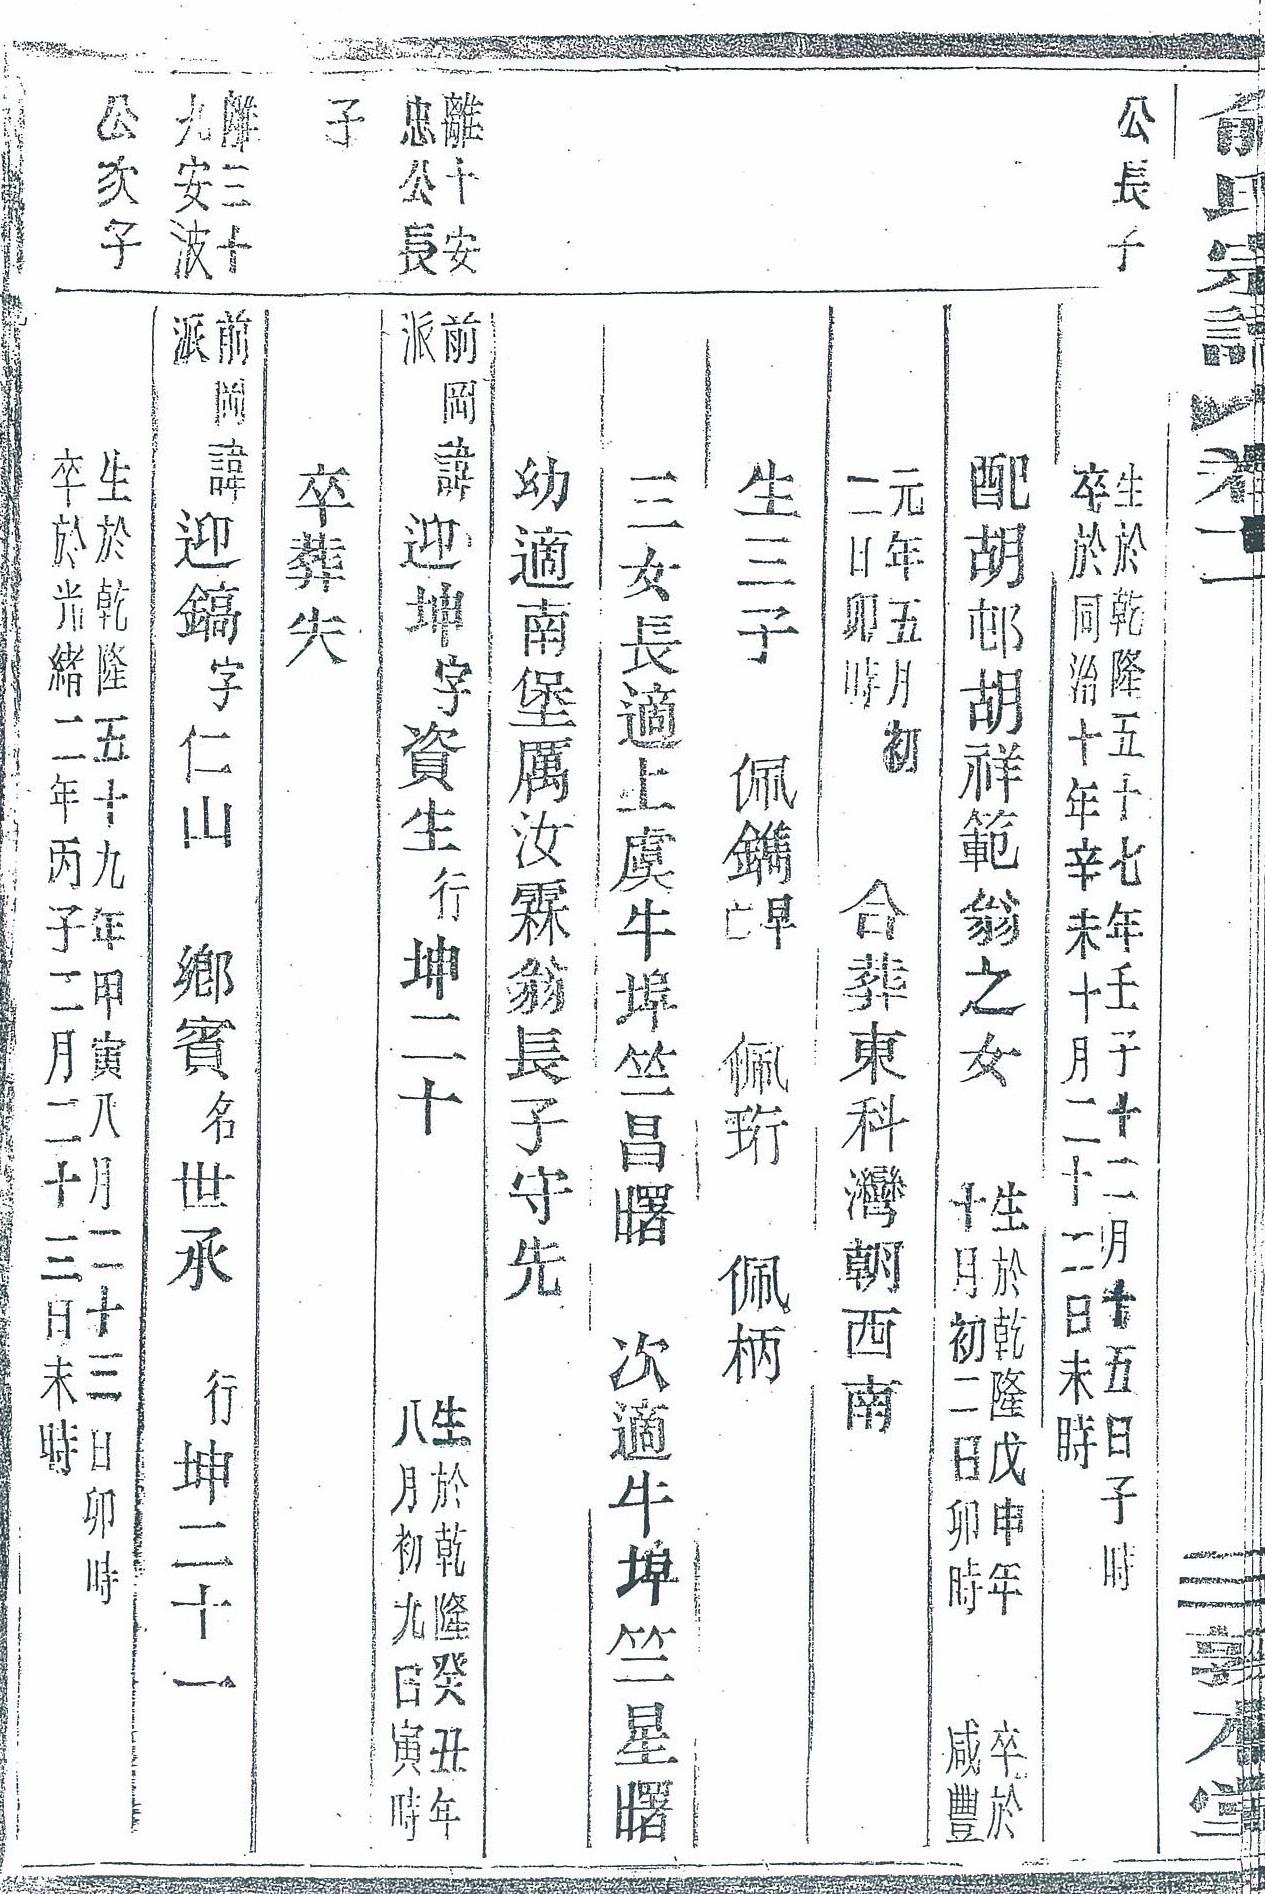 俞氏宗譜
卷十一
義本堂
公長子
生於乾隆五十七年壬子十二月十五日子時
卒於同治十年辛未十月二十二日未時
配胡邨胡祥範翁之女
生於乾隆戊申年
十月初二日卯時
卒於
咸豐
元年五月初
二日卯時
合葬東科灣朝西南
生三子 佩鐫早亡 佩珩 佩柄
三女長適上虞牛埠竺昌曙 次適牛埠竺星曙
幼適南堡厲汝霖翁長子守先
離十安
忠公長
子
前岡派
諱迎坤字資生行坤二十
生於乾隆癸丑年
八月初九日寅時
卒葬失
離三十
九安波
公次子
前岡派
諱迎鎬字仁山 鄉賓名世承 行坤二十一
生於乾隆五十九年甲寅八月二十三日卯時
卒於光緒二年丙子二月二十三日未時